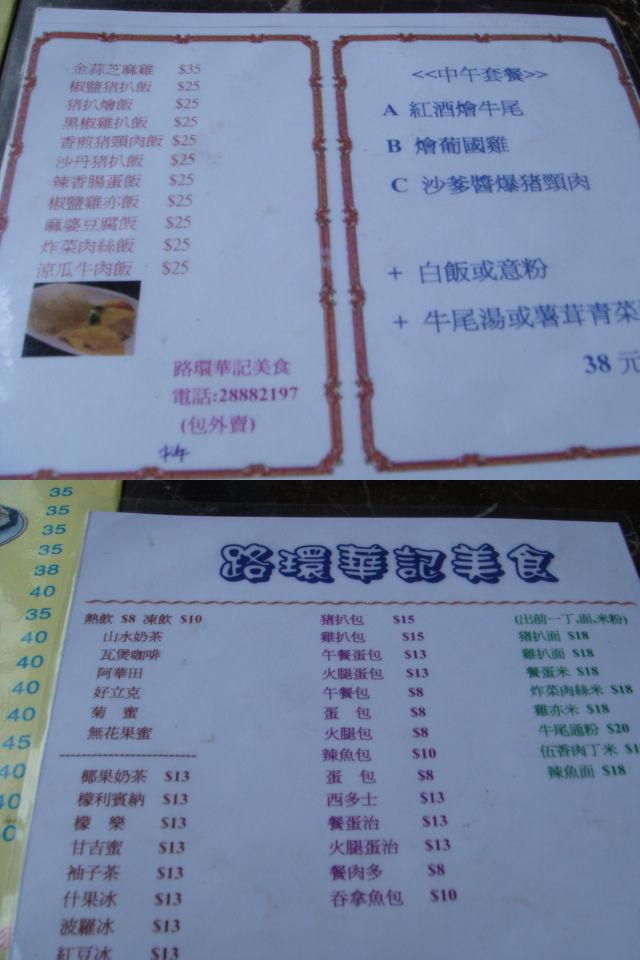 金蒜芝麻雞 $35
椒鹽猪扒飯 $25
猪扒燴飯 $25
黑椒雞扒飯 $25
香煎猪頸肉飯 $25
沙丹猪扒飯 $25
辣香腸蛋飯 $25
椒鹽雞亦飯 $25
麻婆豆腐飯 $25
炸菜肉絲飯 $25
涼瓜牛肉飯 $25
路環華記美食
電話:28882197
(包外賣)
<<中午套餐>>
A 紅酒燴牛尾
B 燴葡國雞
C 沙爹醬爆猪頸肉
+ 白飯或意粉
+ 牛尾湯或薯茸青菜
38 元
35
35
35
35
38
40
35
40
40
40
40
45
40
40
路環華記美食
熱飲 $8 凍飲 $10
山水奶茶
瓦煲咖啡
阿華田
好立克
菊 蜜
無花果蜜
椰果奶茶 $13
檬利賓納 $13
檬 樂 $13
甘吉蜜 $13
袖子茶 $13
什果冰 $13
波羅冰 $13
紅豆冰 $13
猪扒包 $15
雞扒包 $15
午餐蛋包 $13
火腿蛋包 $13
午餐包 $8
蛋 包 $8
火腿包 $8
辣魚包 $10
蛋 包 $8
西多士 $13
餐蛋治 $13
火腿蛋治 $13
餐肉多 $8
吞拿魚包 $10
(出前一丁,面,米粉)
猪扒面 $18
雞扒面 $18
餐蛋米 $18
炸菜肉絲米 $18
雞亦米 $18
牛尾通粉 $20
伍香肉丁米 $1
辣魚面 $18